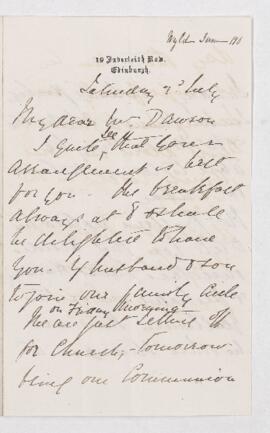 19 Inverleith Row,
Edinburgh.
Saturday 2d July
My dear Mrs Dawson
I quite see that your
arrangement is best
for you. We breakfast
always at 8 & shall
be delighted to have
you & husband & son
to join our family circle
on Friday morning
We are just setting off
for Church, - tomorrow
being our Communion